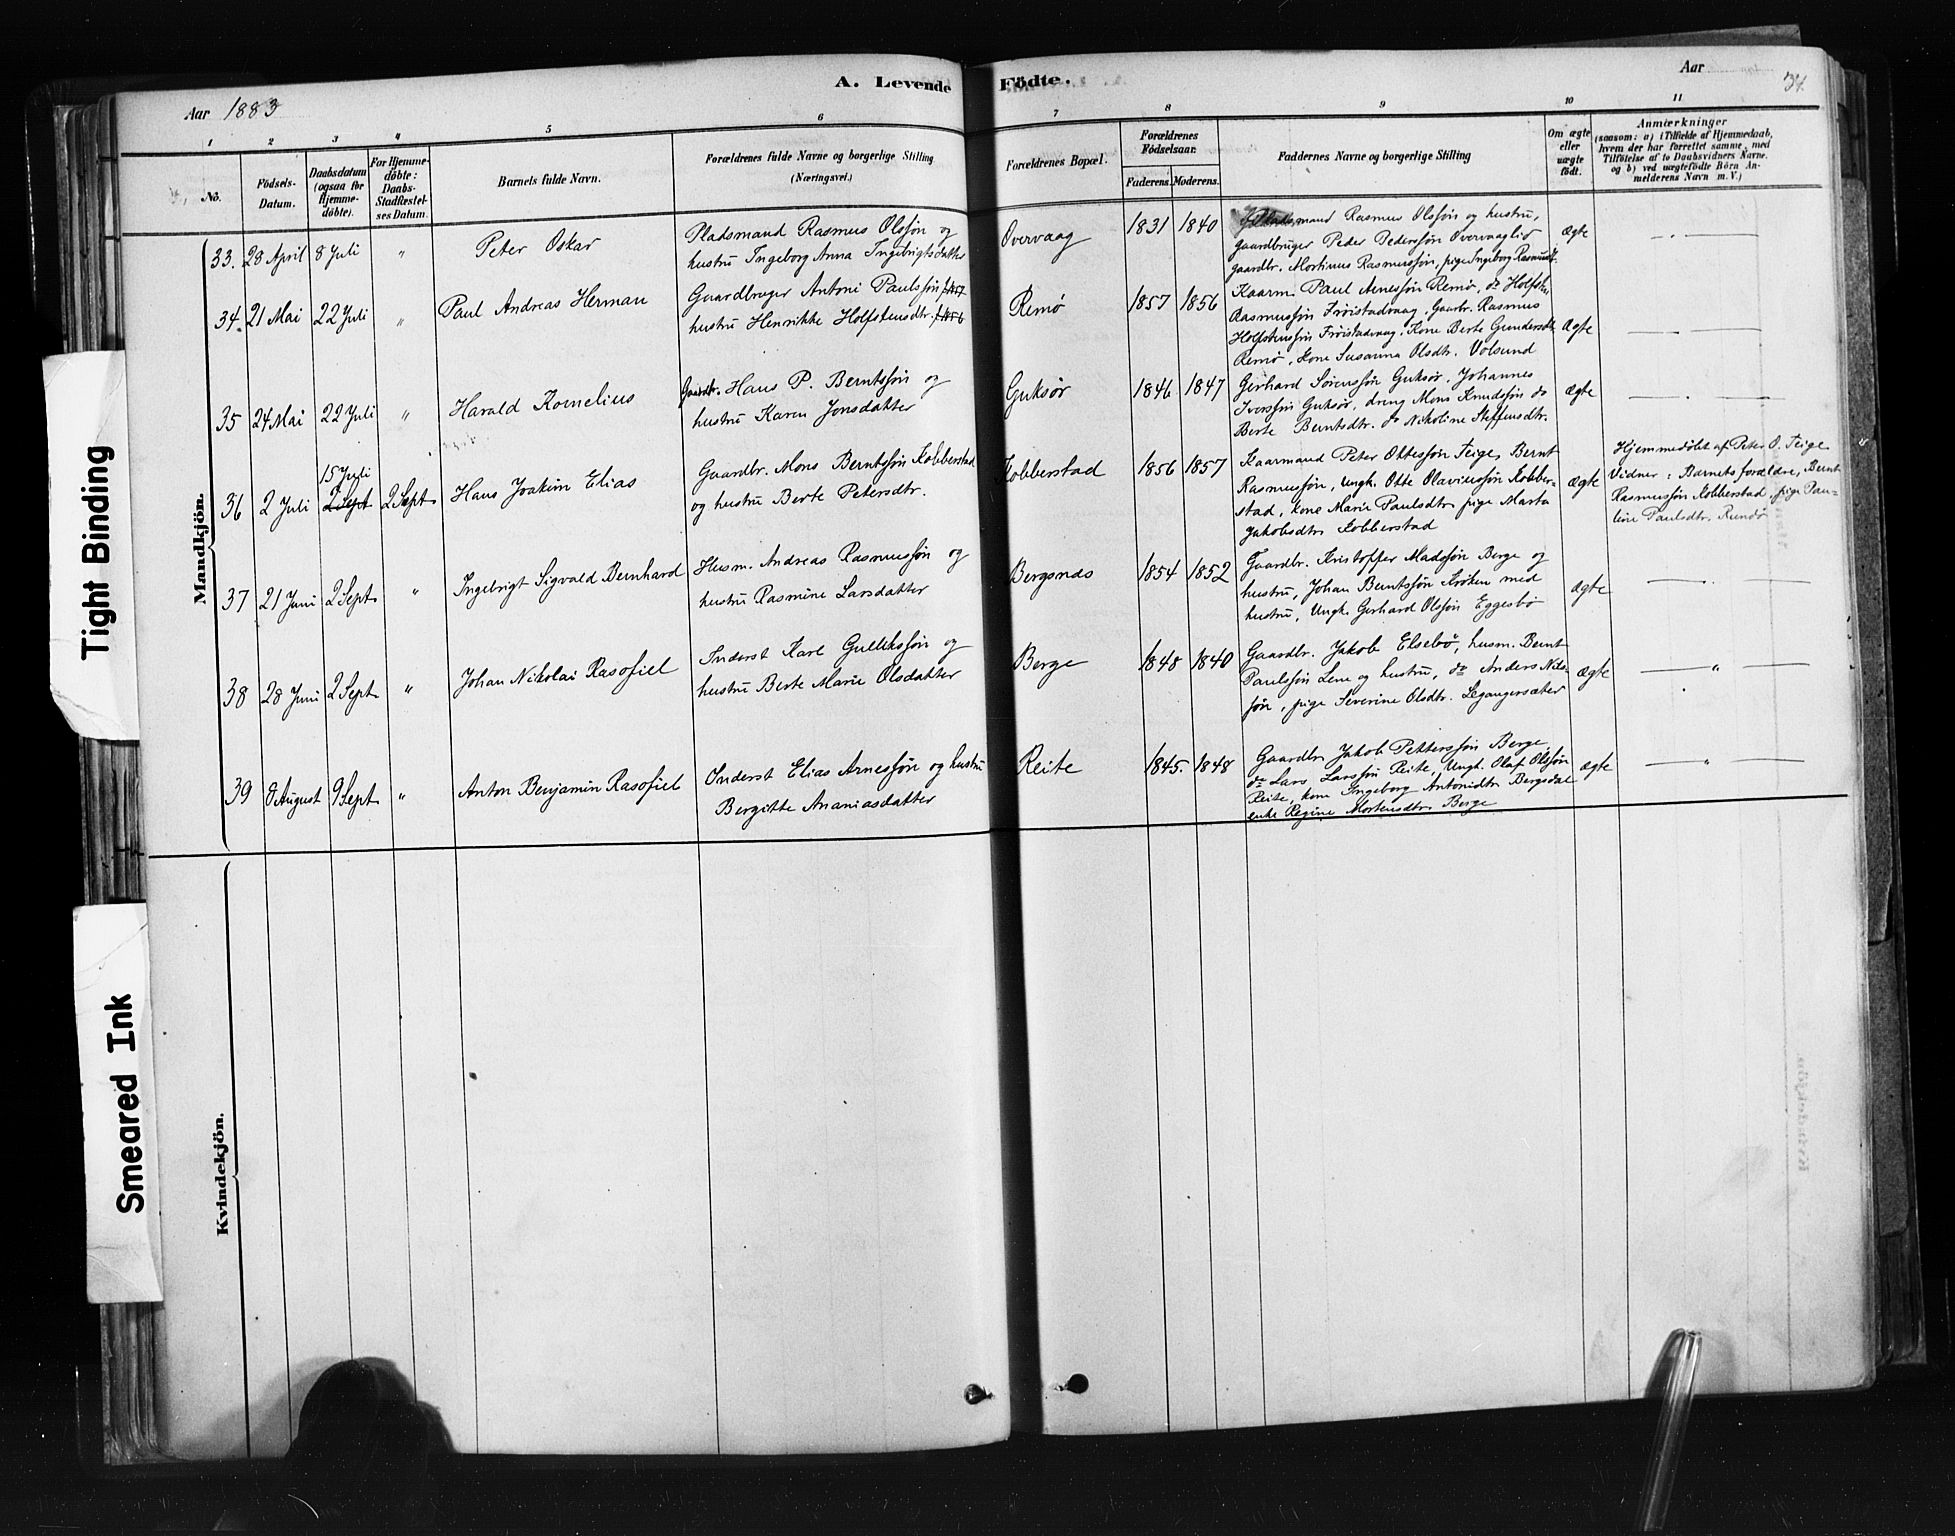 A. Levende Fødte.
Aar 1883
Aar
34.
1 2 3 4 5 6 7 8 9 10 11
No.
Födsels-
Datum.
Daabsdatum
(ogsaa för
Hjemme-
döbte).
For Hjemme-
döbte:
Daabs-
Stadfæstel-
ses Datum.
Barnets fulde Navn.
Forældrenes fulde Navne og borgerlige Stilling
(Næringsvei.)
Forældrenes Bopæl.
Forældrenes
Födselsaar.
Faderens. Moderens.
Faddernes Navne og borgerlige Stilling
Om ægte
eller
uægte
födt.
Anmærkninger
(saasom: a) i Tilfælde af Hjemmedaab,
hvem der har forrettet samme, med
Tilföielse af to Daabsvidners Navne,
og b) ved uægtefödte Börn An-
melderens Navn m. V.)
Mandkjön.
33. 28 April 8 Juli " Peter Oskar
Pladsmand Rasmus Olsføn og
hustru Ingeborg Anna Ingebrigtsdatter
Overvaag 1831 1840
Pladsmand Rasmus Olsføn og hustru,
gaardbruger Peder Pedersføn Overvaaglid
gaardbr. Mortinus Rasmusføn, pige Ingeborg Rasmusdt.
ægte
34. 21 Mai 22 Juli " Paul Andreas Herman
Gaardbruger Antoni Paulsføn f. 1857
hustru Henrikke Holfstensdtr. f. 1856
Remø 1857 1856
Kaarm. Paul Arnesføn Remø, do Holfst.
Rasmusføn Frøistadvaag, Gaardbr. Rasmus
Holfstensføn Frøistadvaag, Kone Berte Gundersdtr
Remø, Kone Susanna Olsdtr. Volsund
ægte
35 24 Mai 22 Juli " Harald Kornelius
Gaardbr. Hans P. Berntsføn og
hustru Karen Jonsdatter
Guksør 1846 1847
Gerhard Sørensføn Guksør, Johannes
Iversføn Guksør, dreng Mons Knudsføn do
Berte Berntsdtr. do Nikoline Steffensdtr.
ægte
36 2 Juli 15 Juli 2 Sept 2 Sept. Hans Joakim Elias
Gaardbr. Mons Berntsføn Kobberstad
og hustru Berte Petersdtr.
Kobberstad 1856 1857
Kaarmand Peter Ottesføn Teige, Bernt
Rasmusføn, Ungk. Otte Olaviusføn Kobber-
stad, kone Marie Paulsdtr. pige Marta
Jakobsdtr. Kobberstad
ægte
Hjemmedøbt af Peter O. Teige
Vidner: Barnets forældre, Bernt
Rasmusføn Kobberstad, pige Pau-
line Paulsdtr. Rundø
37 21 Juni 2 Sept. " Ingebrigt Sigvald Bernhard
Husm. Andreas Rasmusføn og
hustru Rasmine Larsdatter
Bergsnæs 1854 1852
Gaardbr. Kristoffer Madsføn Berge og
hustru, Johan Berntsføn Krøken med
hustru, Ungk. Gerhard Olsføn Eggesbø
ægte
38 28 Juni 2 Sept. " Johan Nikolai Rasofiel
Inderst Karl Gulliksføn og
hustru Berte Marie Olsdatter
Berge 1848 1840
Gaardbr. Jakob Elsebø, husm. Bernt
Paulsføn Leine og hustru, do Anders Nils-
føn, pige Severine Olsdtr. Leganger­sæter
ægte
39 8 August 9 Sept " Anton Benjamin Rasofiel
Inderst Elias Arnesføn og hustru
Bergitte Ananiasdatter
Reite 1845. 1848
Gaardbr. Jakob Pettersføn Berge,
do Lars Larsføn Reite, Ungk. Olaf Olsføn
Reite, kone Ingeborg Antonidtr. Bergsdal
enke Regine Mortensdtr. Berge
ægte
Kvindekjön.
Tight Binding
Smeared Ink